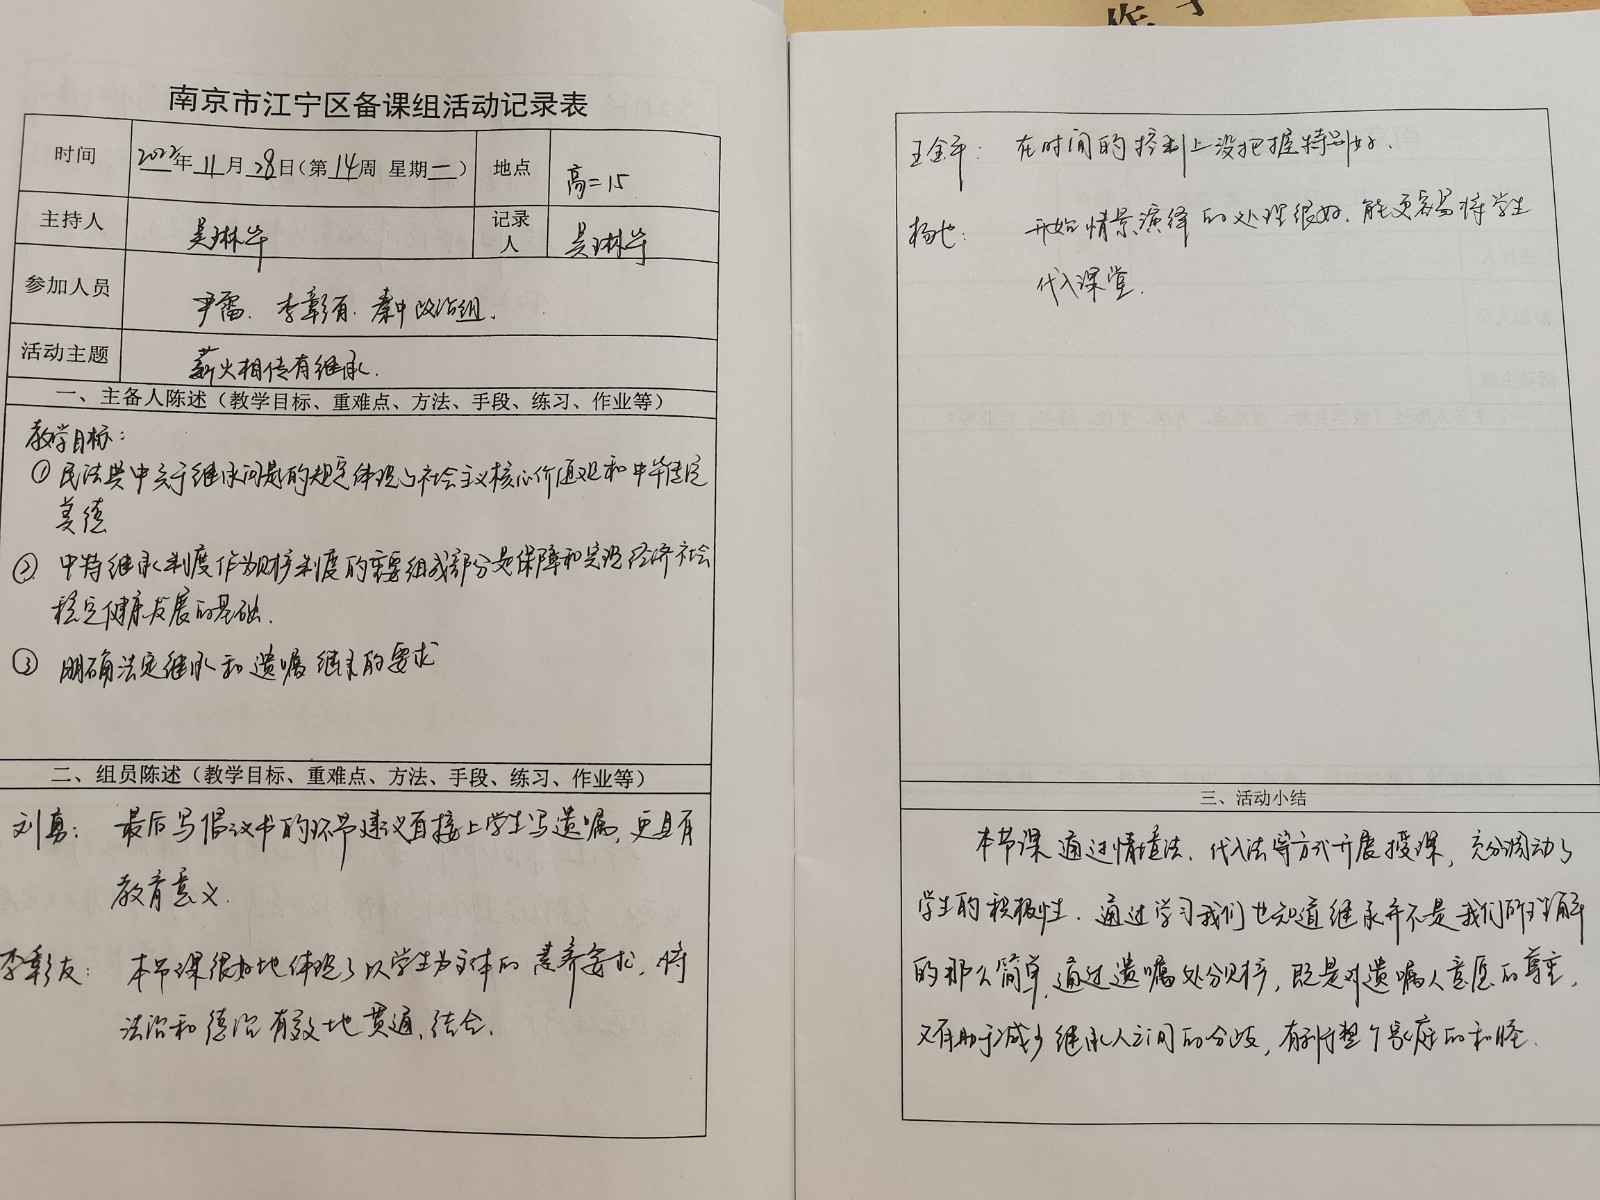 南京市江宁区备课组活动记录表
时间 2022年 11月 28日(第14周 星期一) 地点 高二15
主持人 吴琳华 记录人 吴琳华
参加人员 尹雷、李彰有、秦中政治组.
活动主题 薪火相传有继承.
一、主备人陈述(教学目标、重难点、方法、手段、练习、作业等)
教学目标:
① 民法典中关于继承问题的规定体现了社会主义核心价值观和中华传统
美德
② 中特继承制度作为财产制度的重要组成部分是保障和实现经济社会
稳定健康发展的基础.
③ 明确法定继承和遗嘱继承的要求
二、组员陈述(教学目标、重难点、方法、手段、练习、作业等)
刘勇: 最后写倡议书的环节建议直接上学生写遗嘱,更具有
教育意义.
李彰友: 本节课很好地体现了以学生为主体的素养要求,将
法治和德治有效地贯通、结合.
作
王金平: 在时间的控制上没把握特别好.
杨也: 开始情景演绎的处理很好,能更容易将学生
代入课堂.
三、活动小结
本节课通过情境法、代入法等方式开展授课,充分调动了
学生的积极性.通过学习我们也知道继承并不是我们所理解
的那么简单,通过遗嘱处分财产,既是对遗嘱人意愿的尊重,
又有助于减少继承人之间的分歧,有利于整个家庭的和睦.